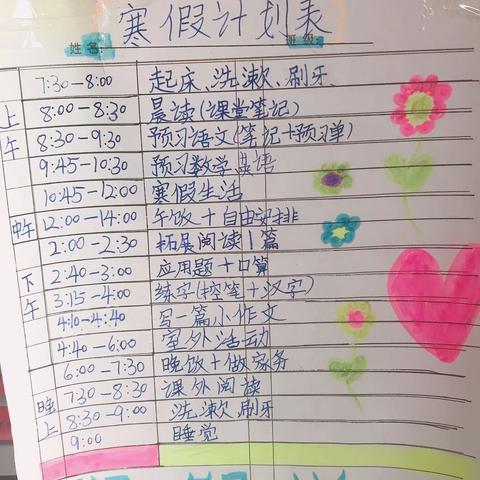 寒假计划表
姓名: 班级:
上午
7:30-8:00 起床、洗漱、刷牙、
8:00-8:30 晨读(课堂笔记)
8:30-9:30 预习语文(笔记+预习单)
9:45-10:30 预习数学英语
10:45-12:00 寒假生活
中午 12:00-14:00 午饭+自由安排
下午
2:00-2:30 拓展阅读1篇
2:40-3:00 应用题+口算
3:15-4:00 练字(控笔+汉字)
4:10-4:40 写一篇小作文
4:40-6:00 室外活动
6:00-7:30 晚饭+做家务
晚上
7:30-8:30 课外阅读
8:30-9:00 洗漱、刷牙
9:00 睡觉